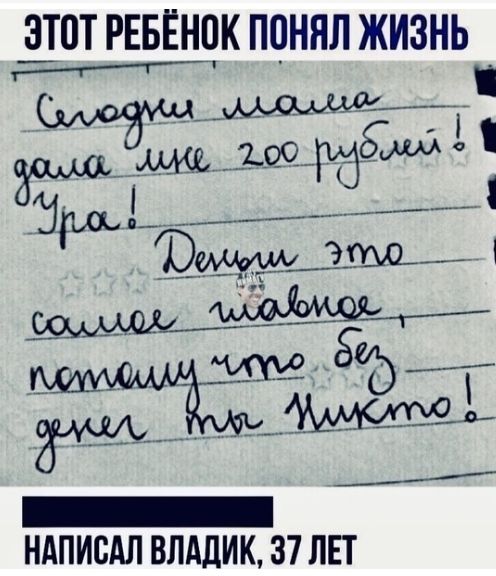 ЭТОТ РЕБЁНОК ПОНЯЛ ЖИЗНЬ
Сегодня мама
дала мне 200 рублей!
Ура!
Деньги это
самое главное,
потому что без
денег ты Никто!
НАПИСАЛ ВЛАДИК, 37 ЛЕТ